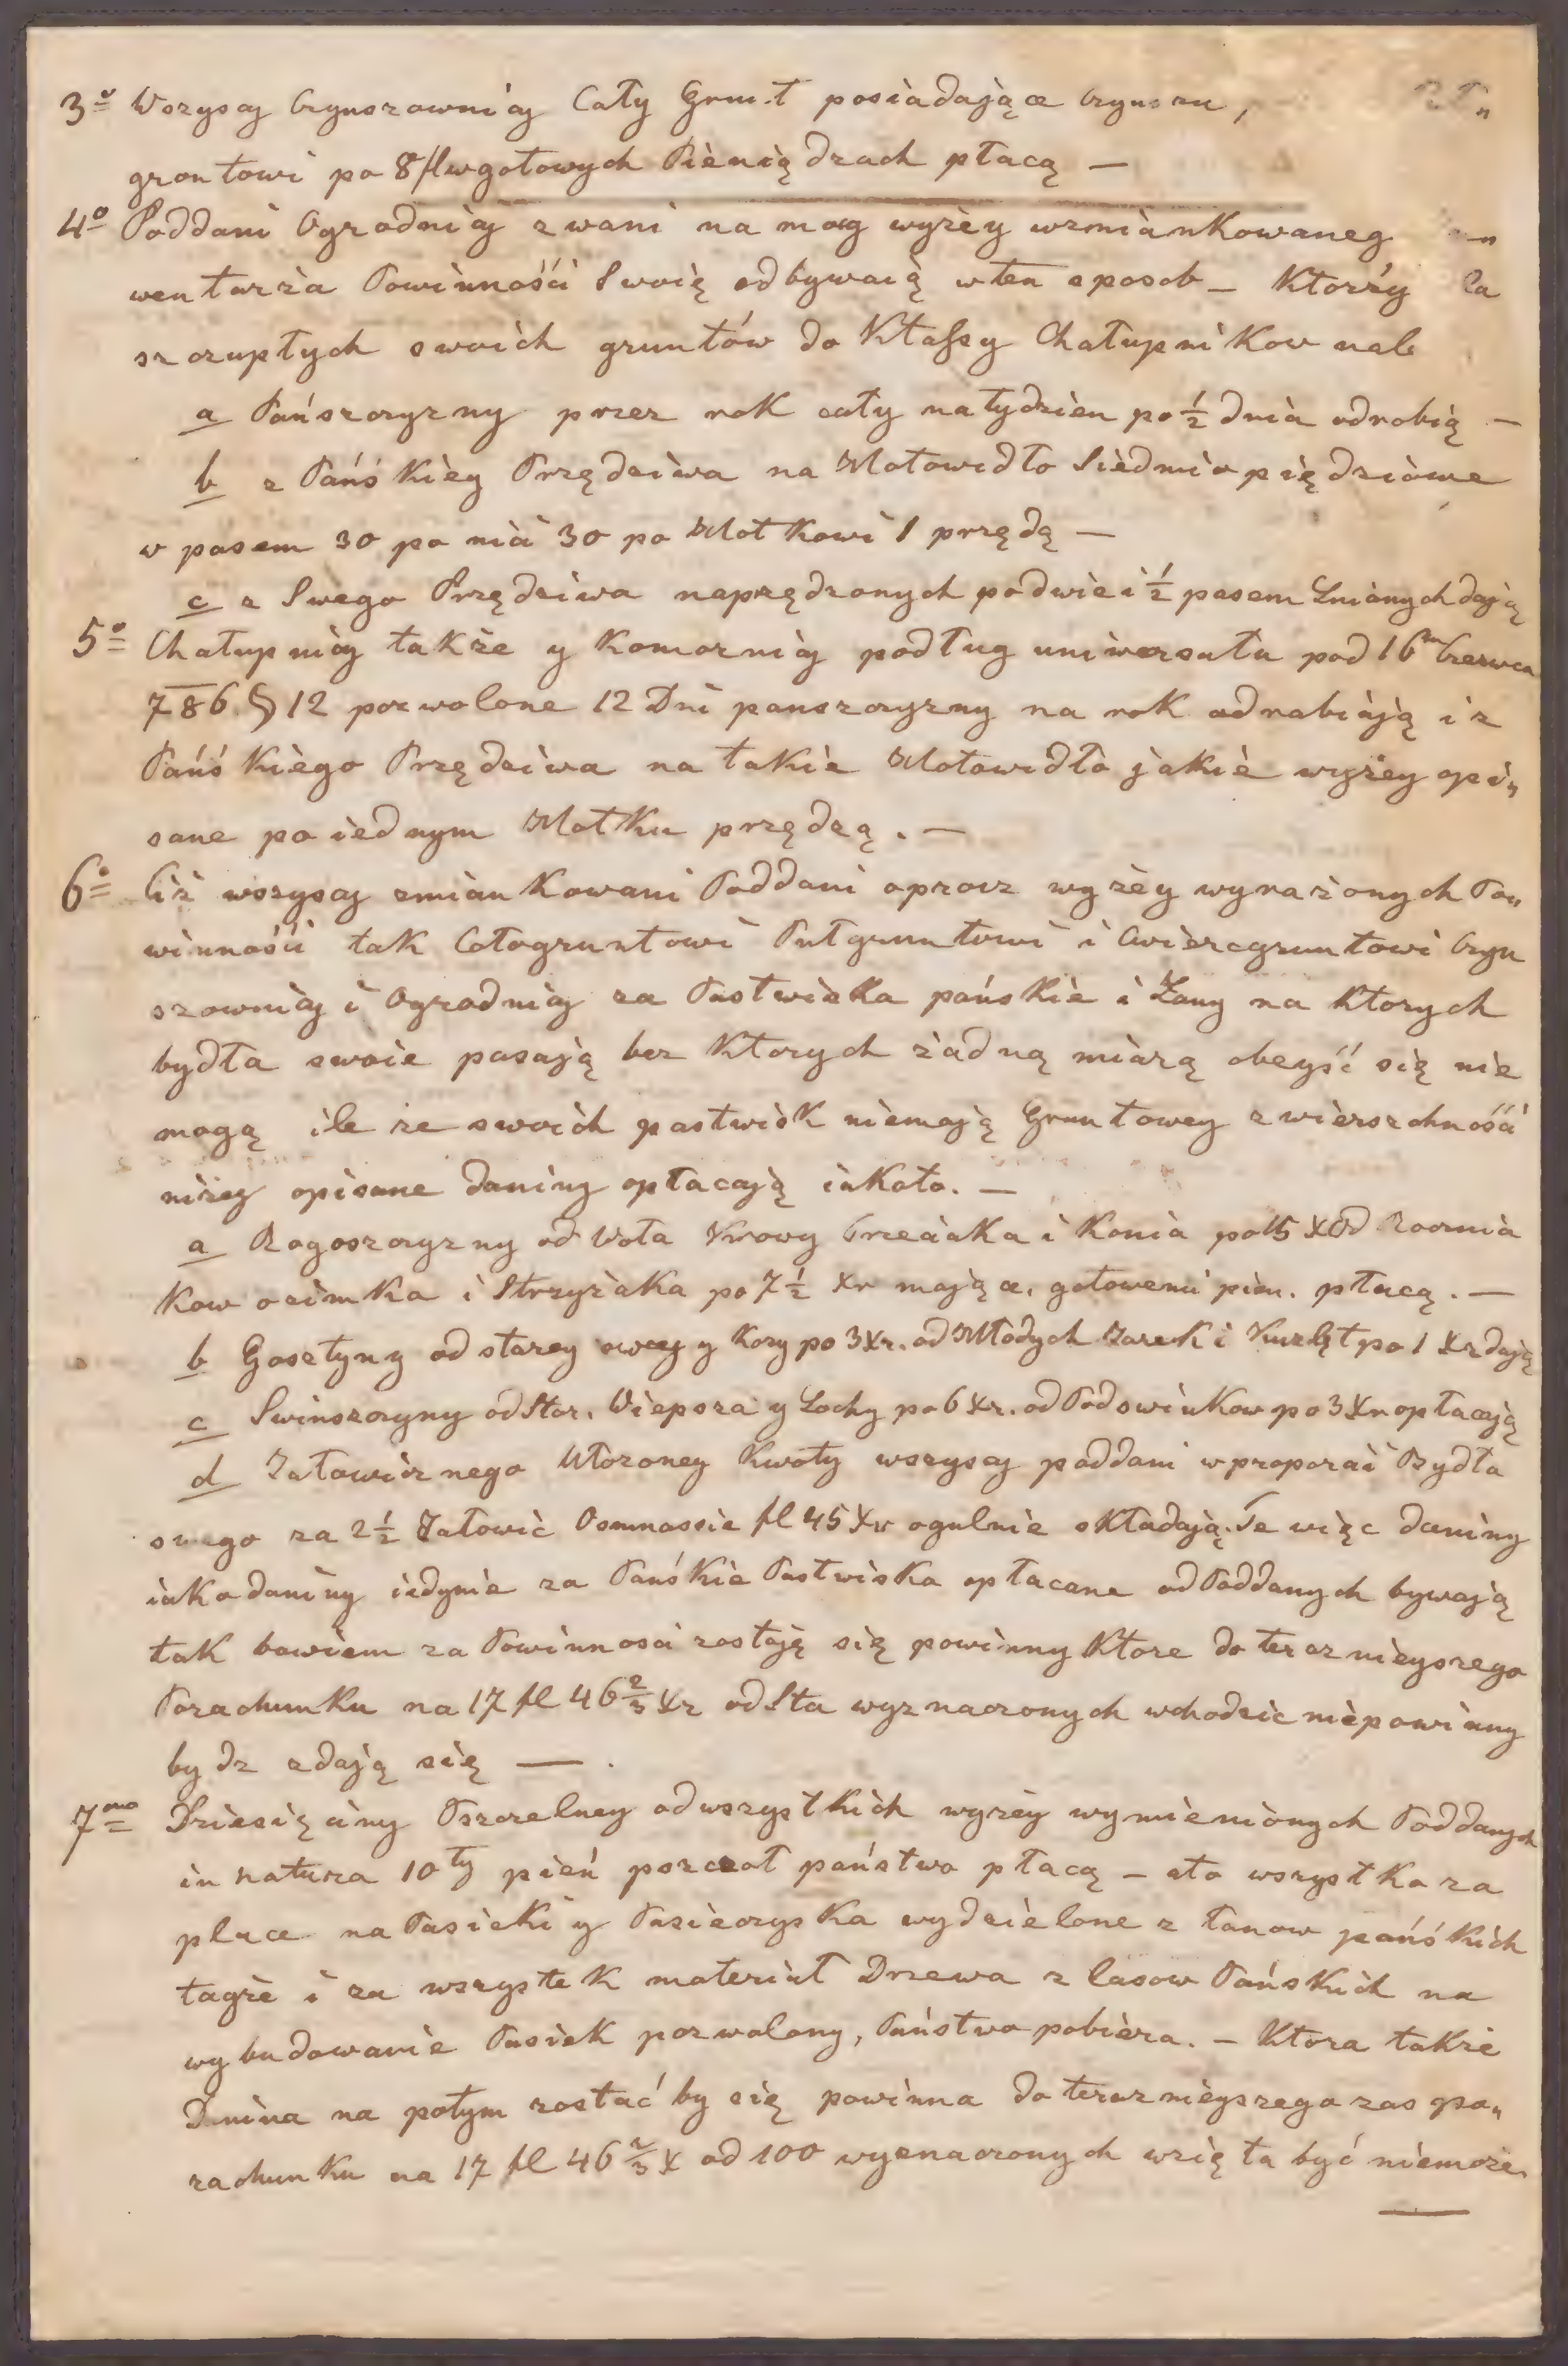 3º Wszyscy Czynszownicy Cały Grunt posiadające Czynszu,
grontowi po 8 fl w gotowych Pieniądzach płacą —
4º Poddani Ogrodnicy zwani na mocy wyżey wzmiankowaneg
wentarża Powinnośći Swoię odbywaią w ten sposob — Ktorży Za
szczupłych swoich gruntów do Klassy Chałupnikow nal
a Pańszczyzny przez rok cały na tydzien po ½ dnia odrobią —
b z Pańśkiey Przędziwa na Motowidło Siedmio piędziowe
w pasem 30 po nici 30 po Motkowi 1 przędą —
c z Swego Przędziwa naprzędzonych po dwie i ½ pasem Lnianych dają
5º Chałupnicy także y Komornicy podług uniwersału pod 16m Czerwca
786 § 12 pozwolone 12 Dni panszczyzny na rok odrabiają i z
Pańśkiego Przędziwa na takie Motowidło jakie wyżey opi„
sane po iednym Motku przędzą. —
6º Ciż wszyscy zmiankowani Poddani oprocz wyżey wyrażonych Po„
winnośći tak Całogruntowi Pułgruntowi i Cwiercgruntowi Czyn
szownicy i Ogrodnicy za Pastwiska pańskie i Łany na Ktorych
bydła swoie pasają bez Ktorych żadną miarą obeyść się nie
mogą ile że swoich pastwisk niemają Gruntowey zwierzchnośći
niżey opisane daniny opłacają iakoto. —
a Rogoszczyzny od Woła Krowy Trzeciaka i Konia po 15 X Od Rocznia
Kow ozimka i Strzyżaka po 7½ Xr mające, gotowemi pien. płacą. —
b Gosztyny od starey owcy y Kozy po 3 Xr. od Młodych Jarek i Kuzląt po 1 Xr dają
c Swinszczyny od Star. Wieprza y Lochy po 6 Xr. od Podswinkow po 3 Xr opłacają
d Jałowicznego Ułożoney Kwoty wszyscy poddani w proporcii Bydła
swego za 2½ Jałowic Osmnascie fl 45 Xr ogulnie składają. Te więc daniny
iako daniny iedynie za Pańśkie Pastwiska opłacane od Poddanych bywają
tak bowiem za Powinnosci zostają się powinny Ktore do teraznieyszego
Porachunku na 17 fl 46⅔ Xr od Sta wyznaczonych wchodzic niepowinny
bydz zdają się — .
7mo Dziesięciny Pszczelney od wszystkich wyżey wymienionych Poddanych
in natura 10ty pień pszczoł państwo płacą — a to wszystko za
place na Pasieki y Pasieczyska wydzielone z łanow pańśkich
tagże i za wszystek materiał Drzewa z lasow Pańskich na
wybudowanie Pasiek pozwolony, Państwo pobiera. — Ktora także
Danina na potym zostać by się powinna do teraznieyszego zas po„
rachunku na 17 fl 46⅔ X od 100 wyznaczonych wzięta być niemoże.